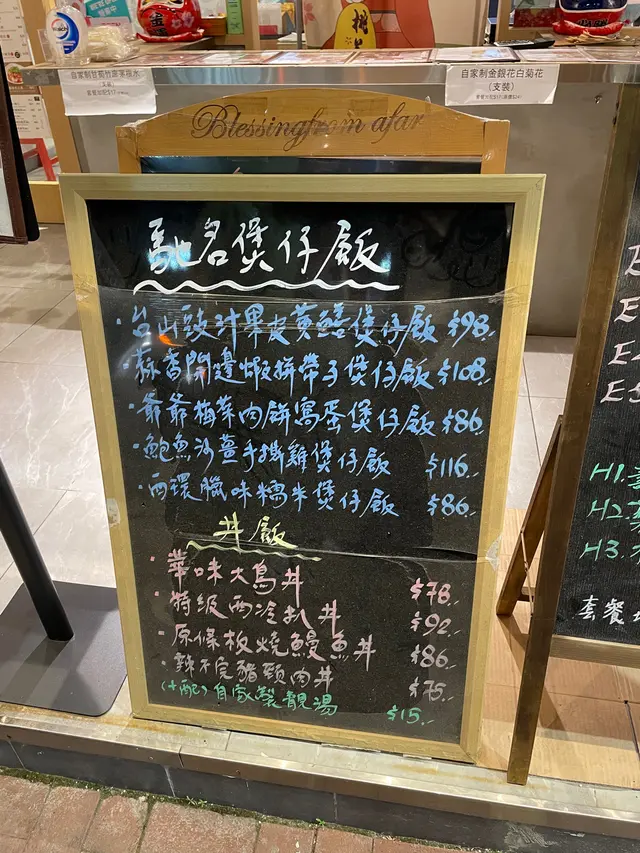 自家制金銀花白菊花
(支裝)
Blessing from afar
馳名煲仔飯
·台山豉汁果皮黃鱔煲仔飯 $98.
·蒜香開邊蝦拼帶子煲仔飯 $108
·爺爺梅菜肉餅窩蛋煲仔飯 $86.
·鮑魚沙薑手撕雞煲仔飯 $116.
·西環臘味糯米煲仔飯 $86.
丼飯
·華味大鳥丼 $78.
·特級西冷扒丼 $92.
·原條板燒鰻魚丼 $86.
·辣不完豬頸肉丼 $75.
(+配) 自家製靚湯 $15.
H1.
H2.
H3.
套餐